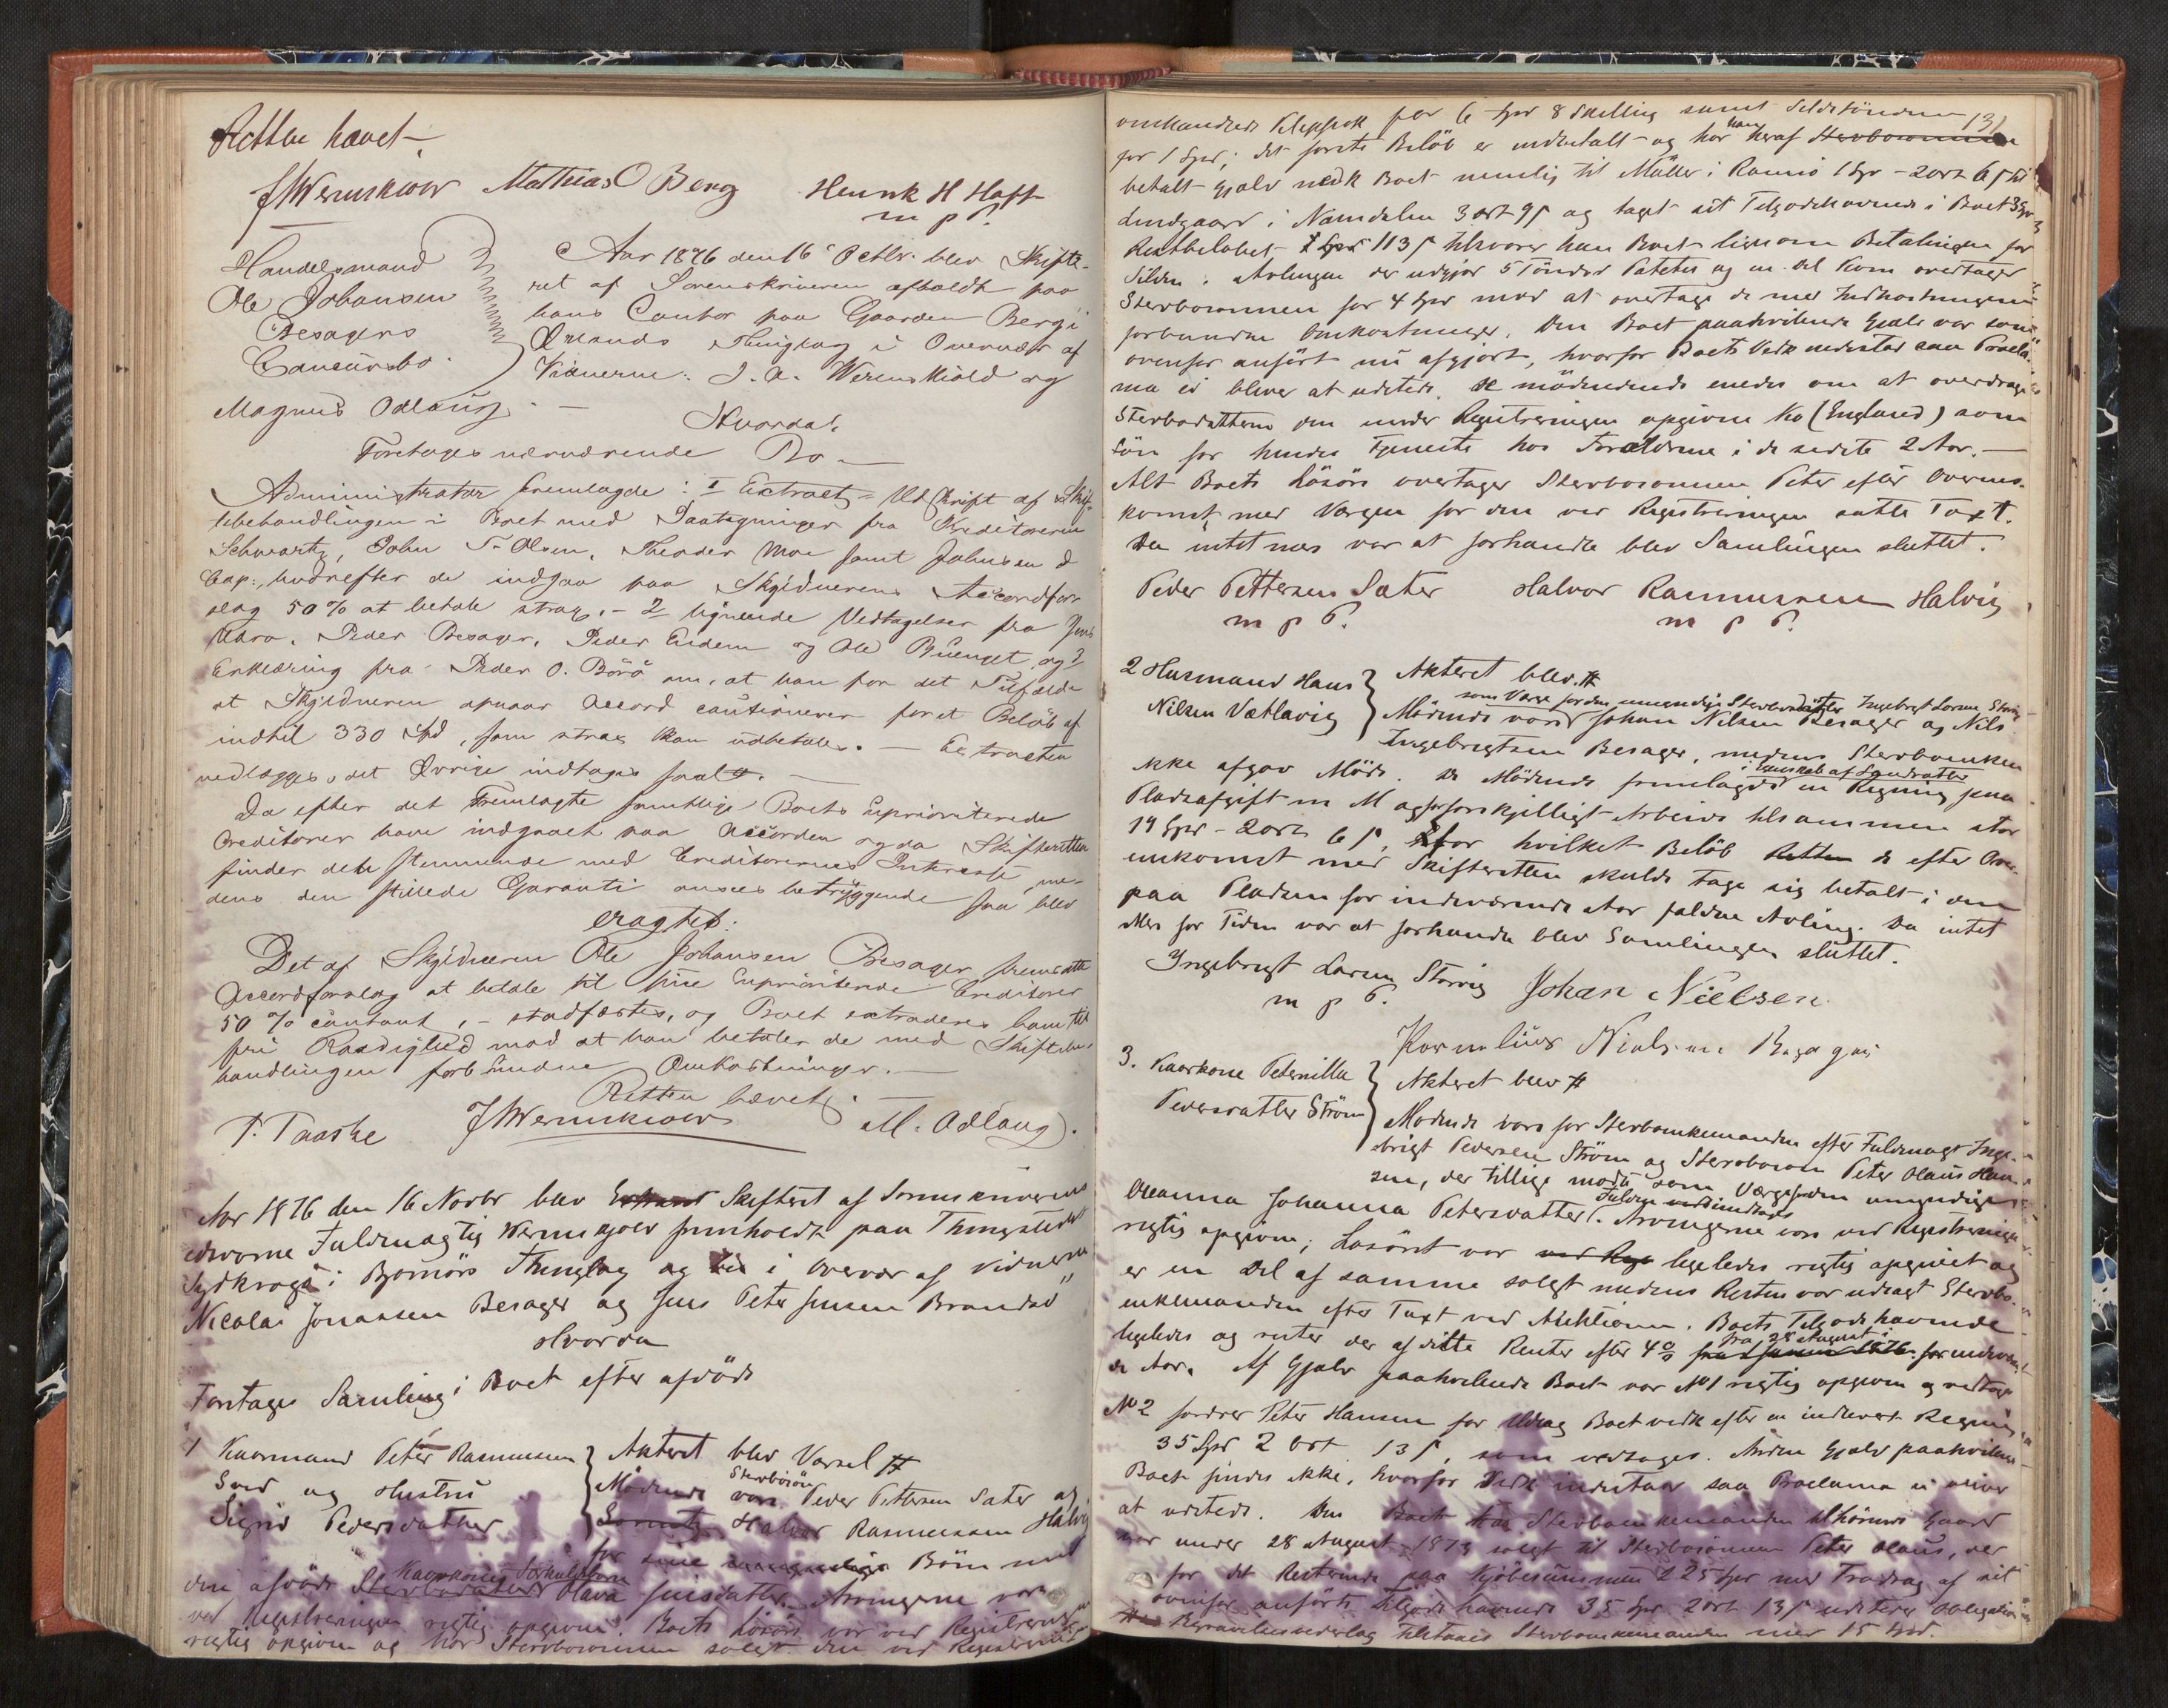 Retten hævet.
JWerenskiold Mathias O Berg Henrik H Hoff
m p P.
Handelsmand
Ole Johansen
Besagers
Concursbo
Aar 1876 den 16 Octbr. blev Skifte-
ret af Sorenskriveren afholdt paa
hans Contor paa Gaarden Berg i
Ørlands Thinglag i Overvær af
Vidnerne: J. A. Werenskiold og
Magnus Ødlaug. —
Hvorda:
Foretages nærværende Bo —
Administrator fremlagde: 1 Extract-Udskrift af Skif-
tebehandlingen i Boet med Paategninger fra Kreditorerne
Schwartz, John T. Olsen, Theodor Moe samt Johnsen &
Cap:, hvorefter de indgaa paa Skyldnerens Accordfor-
slag 50 % at betale strax. - 2 lignende Vedtagelser fra Jens
Peder Besager, Peder Eidem og Ole Buenget, og 3
Erklæring fra Peder O. Börö om, at han for det Tilfælde
at Skyldneren opnaar Accord cautionerer for et Beløb af
indtil 330 Spd, som strax kan udbetales. — Extracten
vedlægges, det Øvrige indtages saal.
Da efter det Fremlagte samtlige Boets uprioriterede
Creditorer have indgaaet paa Accorden og da Skifteretten
finder dette stemmende med Creditorernes Interesse, me-
dens den stillede Garanti ansees betryggende saa blev
eragtet:
Det af Skyldneren Ole Johansen Besager fremsatte
Accordforslag at betale til sine uprioriterede Creditorer
50 % contant, - stadfæstes, og Boet extraderes ham til
fri Raadighed mod at han betaler de med Skiftebe-
handlingen forbundne Omkostninger. —
Retten hævet.
P. Taaske JWerenskiold M. Ødlaug.
Aar 1876 den 16 Novbr blev Skifteret af Sorenskriverens
edsvorne Fuldmægtig Werenskjold fremholdt paa Thingstedet
Sydkrogö i Bjørnörs Thinglag og i Overvær af Vidnerne
Nicolai Jonassen Besager og Jens Peter Jensen Brandsö
Hvorda
Foretages Samling i Boet efter afdöde
1 Kaarmand Peter Rasmussen
og Hustru
Sigrid Pedersdatter
Akteret blev Varsel
Mödende vare Sterbosön Peder Pettersen Sæter og
Halvor Rasmussen Halvig
for sine umyndige Börn med
den afdöde Kaarkones Olava Jensdatter. Arvingerne vare
ved Registreringen rigtig opgivne. Boets Lösöre var ved Registreringen
rigtig opgivne og har Sterbosönnen solgt den ved Registreringen
131
omhandlede Klepfisk for 6 Spd 8 Skilling samt Sildetönden
for 1 Spd; det forste Belöb er indbetalt og har han heraf Sterbosönnen
betalt Gjæld vedk Boet nemlig til Müller i Ramsö 1 Spd - 2 ort 6 s til
Lundgaard i Namdalen 3 ort 9 s og taget sit Tilgodehavende i Boet 3 Spd
Restbelöbet 113 s tilsvarer han Boet ligesom Betalingen for
Silden. Avlingen der udgjør 5 Tönder Poteter og en Del Korn overtager
Sterbosönnen for 4 Spd mod at overtage de med Indhöstningen
forbundne Omkostninger. Den Boet paahvilende Gjæld var som
ovenfor anfört nu afgjort, hvorfor Boets Vedk. saa Procla-
ma ei bliver at udstede. De mödende enedes om at overdrage
Sterbodatteren den under Registreringen opgivne Ko (England) som
Lön for hendes Tjeneste hos Forældrene i de sidste 2 Aar. —
Alt Boets Lösöre overtager Sterbosönnen Peter efter Overens-
komst med Værgen for den ved Registreringen satte Taxt.
Da intet mere var at forhandle blev Samlingen sluttet.
Peder Pettersen Sæter Halvor Rasmussen Halvig
m p P. m p P.
2 Husmand Hans
Nilsen Vætlavig
Akteret blev
som Værge for den umyndige Sterbodatter Ingebrigt Larsen Storvig
Mödende vare Johan Nilsen Besager og Nils
Ingebrigtsen Besager, medens Sterboenken
ikke afgav Möde. De Mödende fremlagde i Egenskab af Landdrotter en Regning paa
Pladsafgift m M og for forskjelligt Arbeide tilsammen stor
14 Spd - 2 ort 6 s, for hvilket Belöb de efter Over-
enkomst med Skifteretten skulde tage sig betalt i den
paa Pladsen for indeværende Aar faldne Avling. Da intet
Mere for Tiden var at forhandle blev Samlingen sluttet.
Ingebrigt Larsen Storvig Johan Nielsen
m p P.
Kornelius Nielsen Besager
3. Kaarkone Peternilla
Pedersdatter Ström
Akteret blev
Mödende vare for Sterboenkemanden efter Fuldmagt Inge-
brigt Pedersen Ström og Sterbosön Peter Olaus Han-
sen, der tillige mödte som Værge for den umyndige
Oleanna Johanna Petersdatter. Arvingerne vare ved Registreringen
rigtig opgivne; Lösöret var ligeledes rigtig opgivet og
er en Del af samme solgt medens Resten var udlagt Sterbo-
enkemanden efter Taxt ved Auktionen. Boets Tilgodehavende
ligeledes og renter der af dette Renter efter 4 % fra 28 August for indeværen-
de Aar. Af Gjæld paahvilende Boet var No 1 rigtig opgiven og vedtages
No 2 fordrer Peter Hansen for Udlæg Boet vedk efter en indlevert Regning
35 Spd 2 Ort 13 s, som vedtages. Anden Gjæld paahvilende
Boet findes ikke, hvorfor Vedk. saa Proclama ei bliver
at udstede. Den Boet Sterboenkemanden tilhörende Gaard
var under 28 August 1873 solgt til Sterbosönnen Peter Olaus, der
for det Resterende paa Kjöbesummen 225 Spd med Fradrag af sit
ovenfor anförte Tilgodehavende 35 Spd 2 ort 13 s udsteder Obligation
Begravelsesvederlag tilstaaes Sterboenkemanden med 15 Spd.